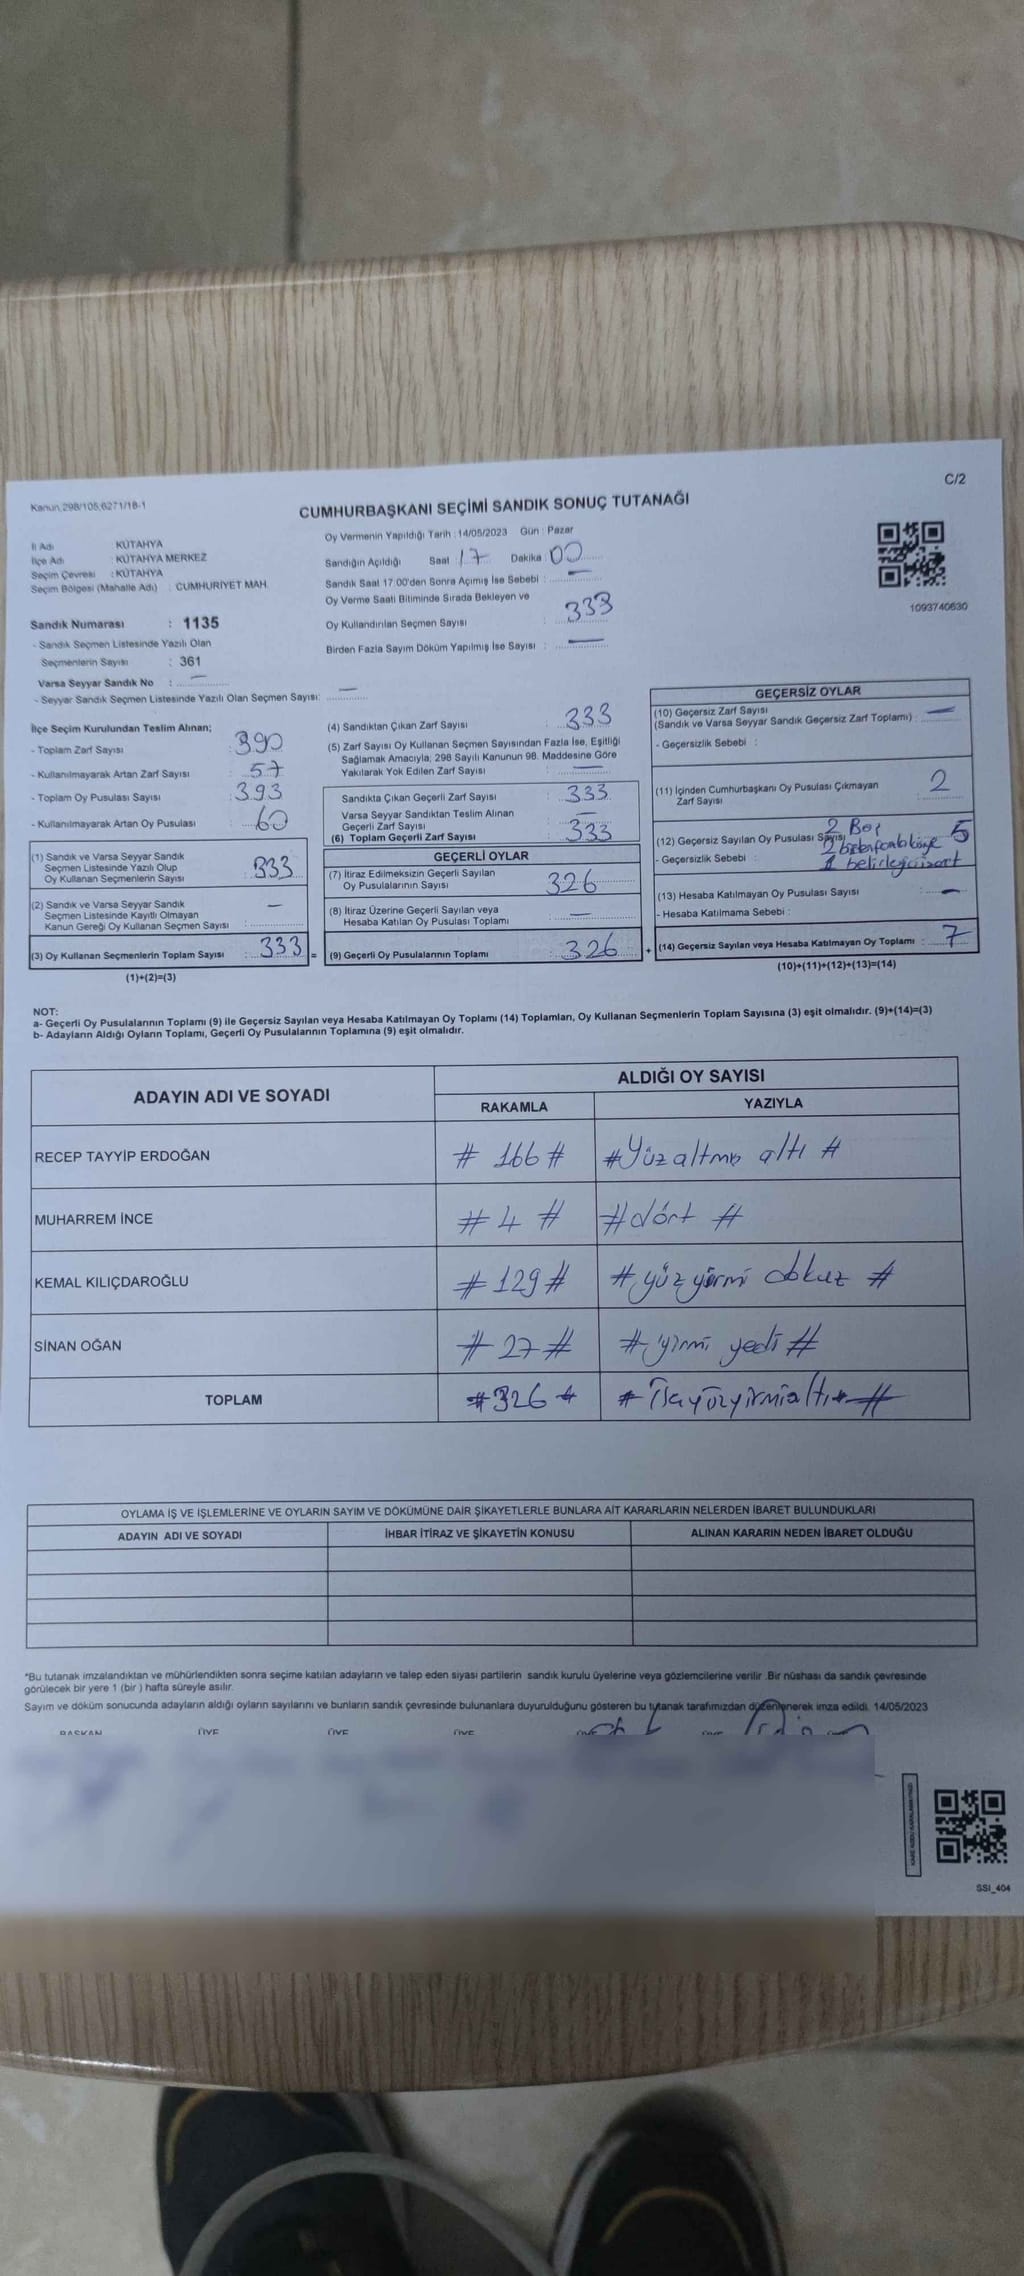 Kanun 298/105;6271/18-1
C/2
CUMHURBAŞKANI SEÇİMİ SANDIK SONUÇ TUTANAĞI
İl Adı KÜTAHYA
İlçe Adı : KÜTAHYA MERKEZ
Seçim Çevresi : KÜTAHYA
Seçim Bölgesi (Mahalle Adı) : CUMHURİYET MAH.
Sandık Numarası : 1135
- Sandık Seçmen Listesinde Yazılı Olan
Seçmenlerin Sayısı : 361
Varsa Seyyar Sandık No : —
- Seyyar Sandık Seçmen Listesinde Yazılı Olan Seçmen Sayısı: —
Oy Vermenin Yapıldığı Tarih : 14/05/2023 Gün : Pazar
Sandığın Açıldığı Saat 17 Dakika : 00
Sandık Saat 17:00'den Sonra Açımış İse Sebebi : —
Oy Verme Saati Bitiminde Sırada Bekleyen ve
Oy Kullandırılan Seçmen Sayısı : 333
Birden Fazla Sayım Döküm Yapılmış İse Sayısı : —
1093740630
İlçe Seçim Kurulundan Teslim Alınan;
- Toplam Zarf Sayısı : 390
- Kullanılmayarak Artan Zarf Sayısı : 57
- Toplam Oy Pusulası Sayısı : 393
- Kullanılmayarak Artan Oy Pusulası : 60
(1) Sandık ve Varsa Seyyar Sandık
Seçmen Listesinde Yazılı Olup
Oy Kullanan Seçmenlerin Sayısı : 333
(2) Sandık ve Varsa Seyyar Sandık
Seçmen Listesinde Kayıtlı Olmayan
Kanun Gereği Oy Kullanan Seçmen Sayısı : —
(3) Oy Kullanan Seçmenlerin Toplam Sayısı : 333 =
(1)+(2)=(3)
(4) Sandıktan Çıkan Zarf Sayısı : 333
(5) Zarf Sayısı Oy Kullanan Seçmen Sayısından Fazla İse, Eşitliği
Sağlamak Amacıyla; 298 Sayılı Kanunun 98. Maddesine Göre
Yakılarak Yok Edilen Zarf Sayısı : —
Sandıkta Çıkan Geçerli Zarf Sayısı : 333
Varsa Seyyar Sandıktan Teslim Alınan
Geçerli Zarf Sayısı : —
(6) Toplam Geçerli Zarf Sayısı : 333
GEÇERLİ OYLAR
(7) İtiraz Edilmeksizin Geçerli Sayılan
Oy Pusulalarının Sayısı 326
(8) İtiraz Üzerine Geçerli Sayılan veya
Hesaba Katılan Oy Pusulası Toplamı : —
(9) Geçerli Oy Pusulalarının Toplamı : 326 +
GEÇERSİZ OYLAR
(10) Geçersiz Zarf Sayısı
(Sandık ve Varsa Seyyar Sandık Geçersiz Zarf Toplamı) : —
- Geçersizlik Sebebi :
(11) İçinden Cumhurbaşkanı Oy Pusulası Çıkmayan
Zarf Sayısı : 2
(12) Geçersiz Sayılan Oy Pusulası Sayısı 2 Boş 5
2 birden fazla
- Geçersizlik Sebebi : 1 belirleyici
(13) Hesaba Katılmayan Oy Pusulası Sayısı : —
- Hesaba Katılmama Sebebi :
(14) Geçersiz Sayılan veya Hesaba Katılmayan Oy Toplamı : 7
(10)+(11)+(12)+(13)=(14)
NOT:
a- Geçerli Oy Pusulalarının Toplamı (9) ile Geçersiz Sayılan veya Hesaba Katılmayan Oy Toplamı (14) Toplamları, Oy Kullanan Seçmenlerin Toplam Sayısına (3) eşit olmalıdır. (9)+(14)=(3)
b- Adayların Aldığı Oyların Toplamı, Geçerli Oy Pusulalarının Toplamına (9) eşit olmalıdır.
ADAYIN ADI VE SOYADI
ALDIĞI OY SAYISI
RAKAMLA YAZIYLA
RECEP TAYYİP ERDOĞAN # 166 # # Yüz altmış altı #
MUHARREM İNCE # 4 # # dört #
KEMAL KILIÇDAROĞLU # 129 # # yüz yirmi dokuz #
SİNAN OĞAN # 27 # # yirmi yedi #
TOPLAM # 326 # # Üçyüzyirmialtı #
OYLAMA İŞ VE İŞLEMLERİNE VE OYLARIN SAYIM VE DÖKÜMÜNE DAİR ŞİKAYETLERLE BUNLARA AİT KARARLARIN NELERDEN İBARET BULUNDUKLARI
ADAYIN ADI VE SOYADI İHBAR İTİRAZ VE ŞİKAYETİN KONUSU ALINAN KARARIN NEDEN İBARET OLDUĞU
*Bu tutanak imzalandıktan ve mühürlendikten sonra seçime katılan adayların ve talep eden siyasi partilerin sandık kurulu üyelerine veya gözlemcilerine verilir .Bir nüshası da sandık çevresinde
görülecek bir yere 1 (bir ) hafta süreyle asılır.
Sayım ve döküm sonucunda adayların aldığı oyların sayılarını ve bunların sandık çevresinde bulunanlara duyurulduğunu gösteren bu tutanak tarafımızdan düzenlenerek imza edildi. 14/05/2023
BAŞKAN ÜYE ÜYE ÜYE
SSI_404